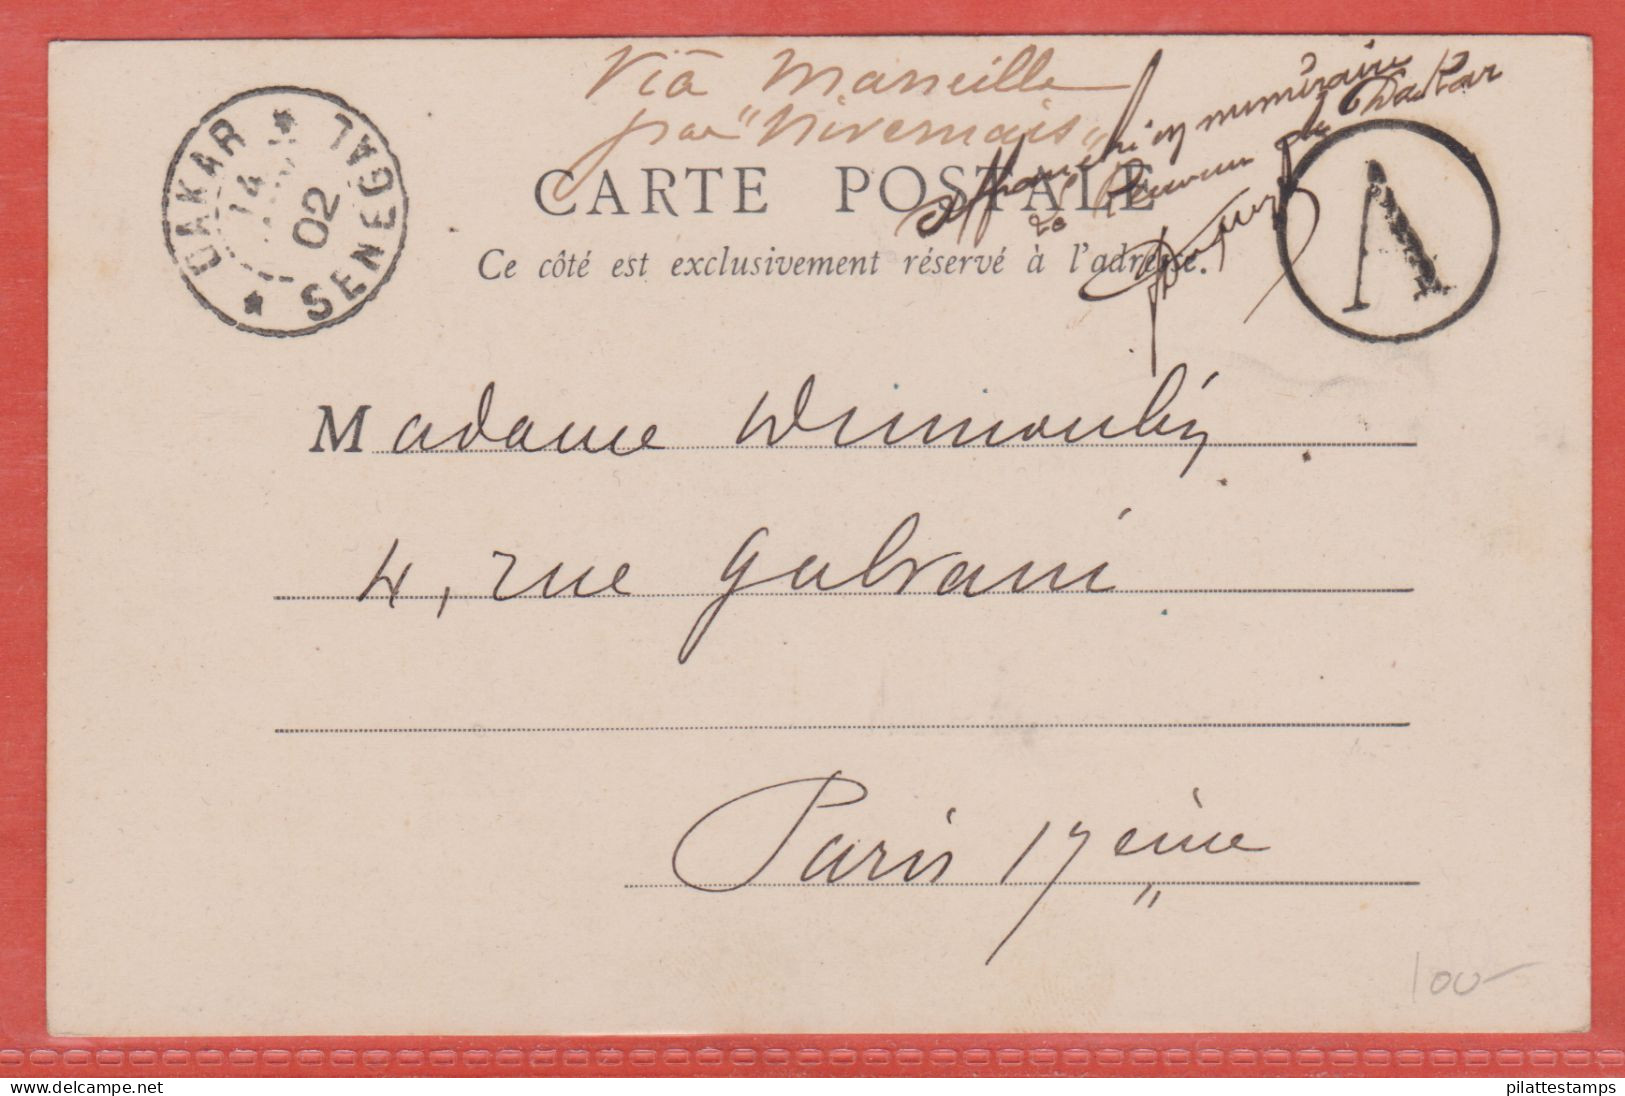 Via Marseille
par "Nivernais"
Affranchi en numéraire
Le Receveur de Dakar
DAKAR
SENEGAL
14
02
CARTE POSTALE
Ce côté est exclusivement réservé à l'adresse.
Madame Dumoulin
4, rue Galvani
Paris 17 ème
100-
pilattestamps